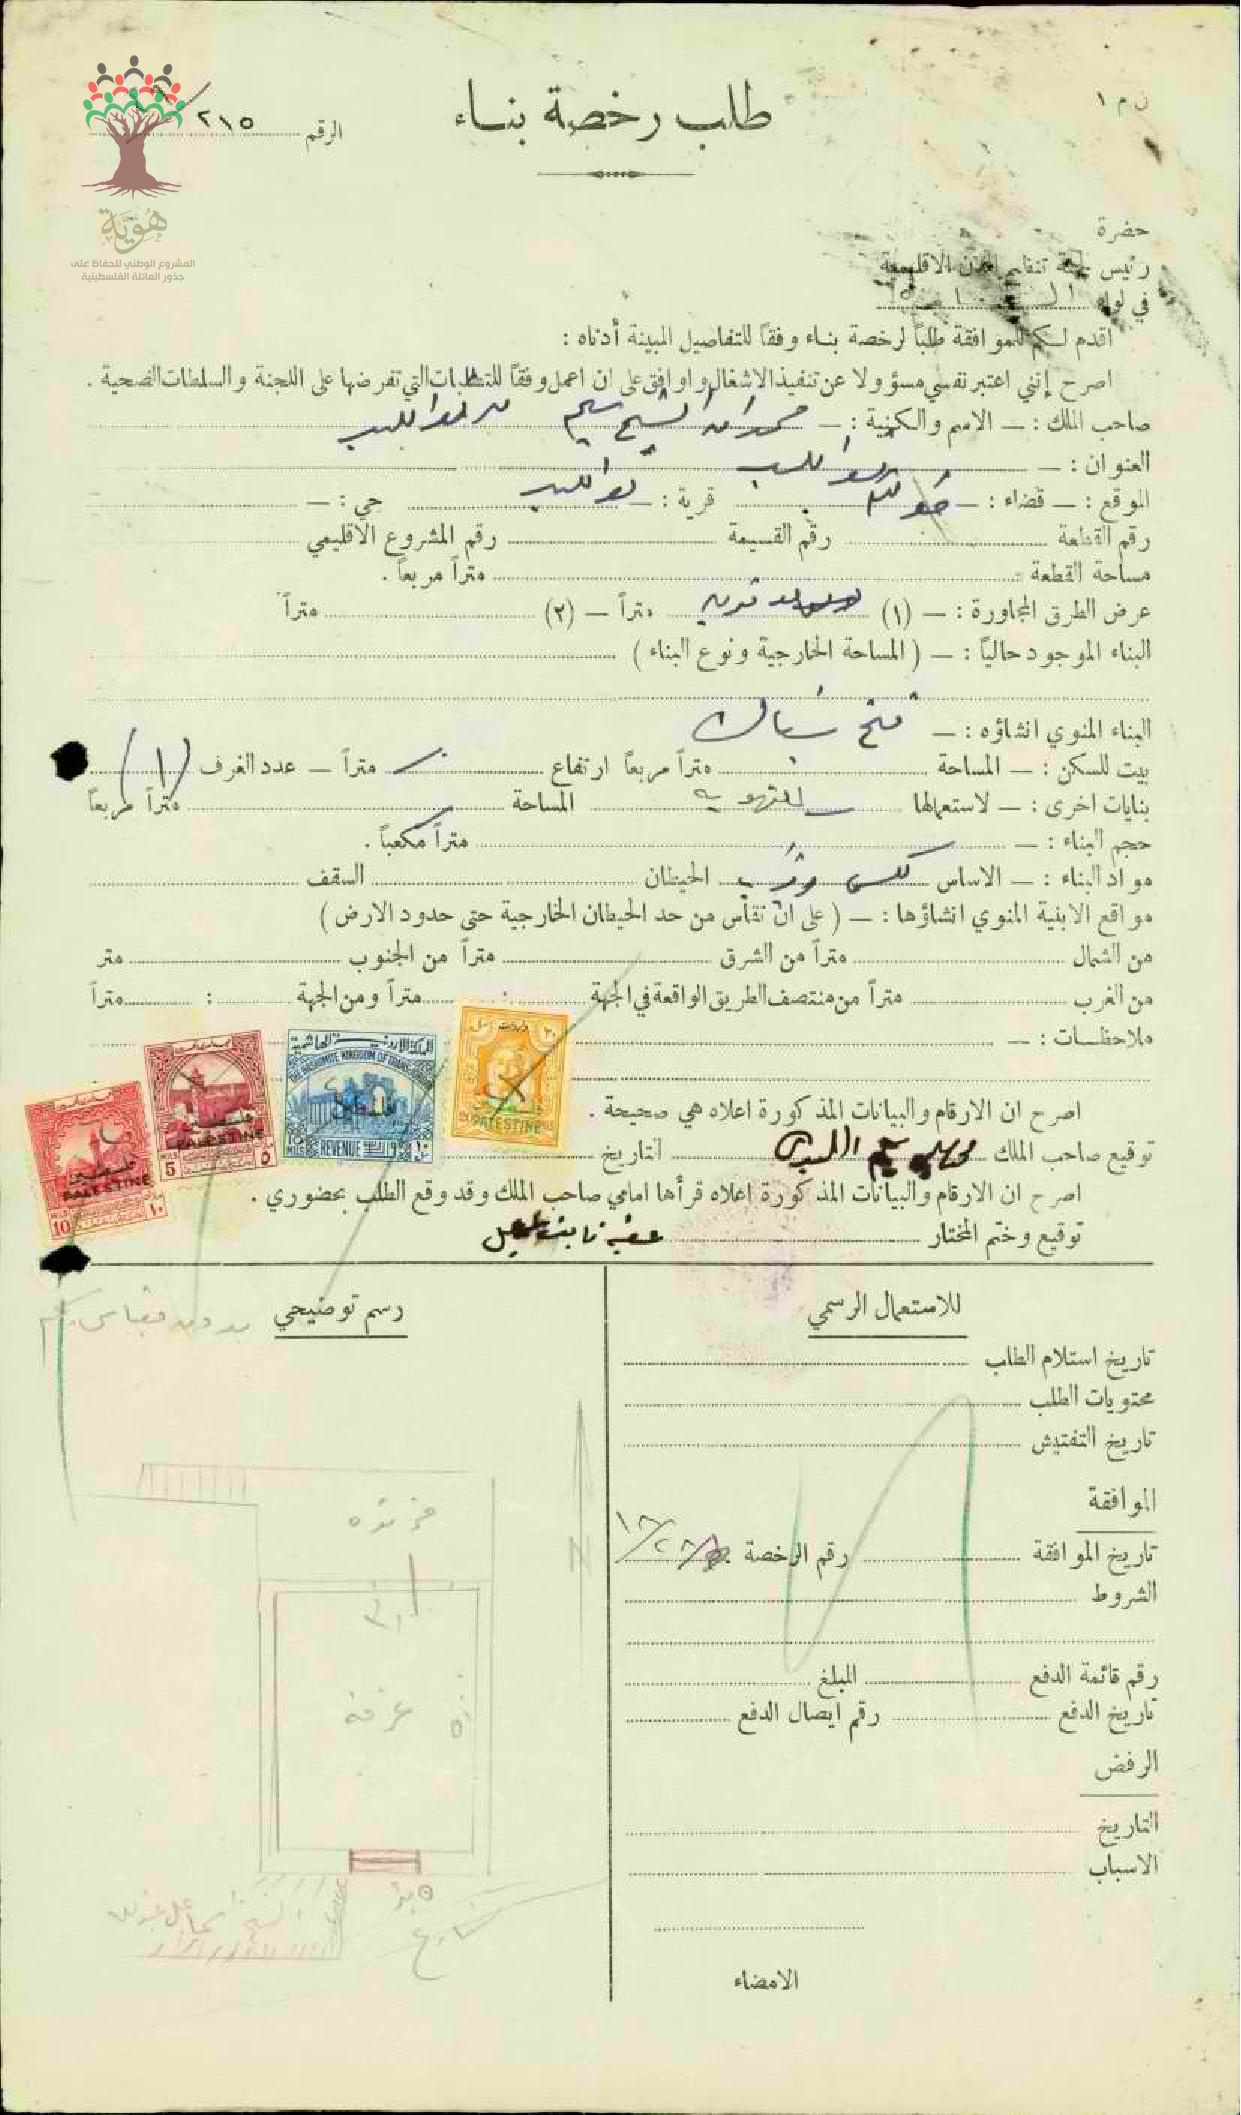 ن م ١
طلب رخصة بناء
الرقم ٢١٥
هُوِيَّة
المشروع الوطني للحفاظ على
جذور العائلة الفلسطينية
حضرة
رئيس لجنة تنظيم المدن الاقليمية
في لواء
اقدم لكم للموافقة طلباً لرخصة بناء وفقاً للتفاصيل المبينة أدناه :
اصرح إنني اعتبر نفسي مسؤولا عن تنفيذ الاشغال واوافق على ان اعمل وفقاً للمتطلبات التي تفرضها على اللجنة والسلطات الصحية .
صاحب الملك : — الاسم والكنية : — الشيخ سليم
العنوان : —
الموقع : — قضاء : — قرية : — حي : —
رقم القطعة رقم القسيمة رقم المشروع الاقليمي
مساحة القطعة متراً مربعاً .
عرض الطرق المجاورة : — (١) متراً — (٢) متراً
البناء الموجود حالياً : — ( المساحة الخارجية ونوع البناء )
البناء المنوي انشاؤه : — فتح شباك
بيت للسكن : — المساحة متراً مربعاً ارتفاع متراً — عدد الغرف (١)
بنايات اخرى : — لاستعمالها للتهوية المساحة متراً مربعاً
حجم البناء : — متراً مكعباً .
مواد البناء : — الاساس الحيطان السقف
مواقع الابنية المنوي انشاؤها : — ( على ان تقاس من حد الحيطان الخارجية حتى حدود الارض )
من الشمال متراً من الشرق متراً من الجنوب متر
من الغرب متراً من منتصف الطريق الواقعة في الجهة : متراً ومن الجهة : متراً
ملاحظات : —
المملكة الاردنية الهاشمية
THE HASHEMITE KINGDOM OF TRANSJORDAN
فلسطين
REVENUE
MILS
PALESTINE
PALESTINE
5 MILS ٥
PALESTINE
10 MILS ١٠
اصرح ان الارقام والبيانات المذكورة اعلاه هي صحيحة .
توقيع صاحب الملك التاريخ
اصرح ان الارقام والبيانات المذكورة اعلاه قرأها امامي صاحب الملك وقد وقع الطلب بحضوري .
توقيع وختم المختار
للاستعمال الرسمي
تاريخ استلام الطلب
محتويات الطلب
تاريخ التفتيش
الموافقة
تاريخ الموافقة رقم الرخصة
الشروط
رقم قائمة الدفع المبلغ
تاريخ الدفع رقم ايصال الدفع
الرفض
التاريخ
الاسباب
الامضاء
رسم توضيحي
بدون مقياس رسم
N
غرفة
بئر
شارع